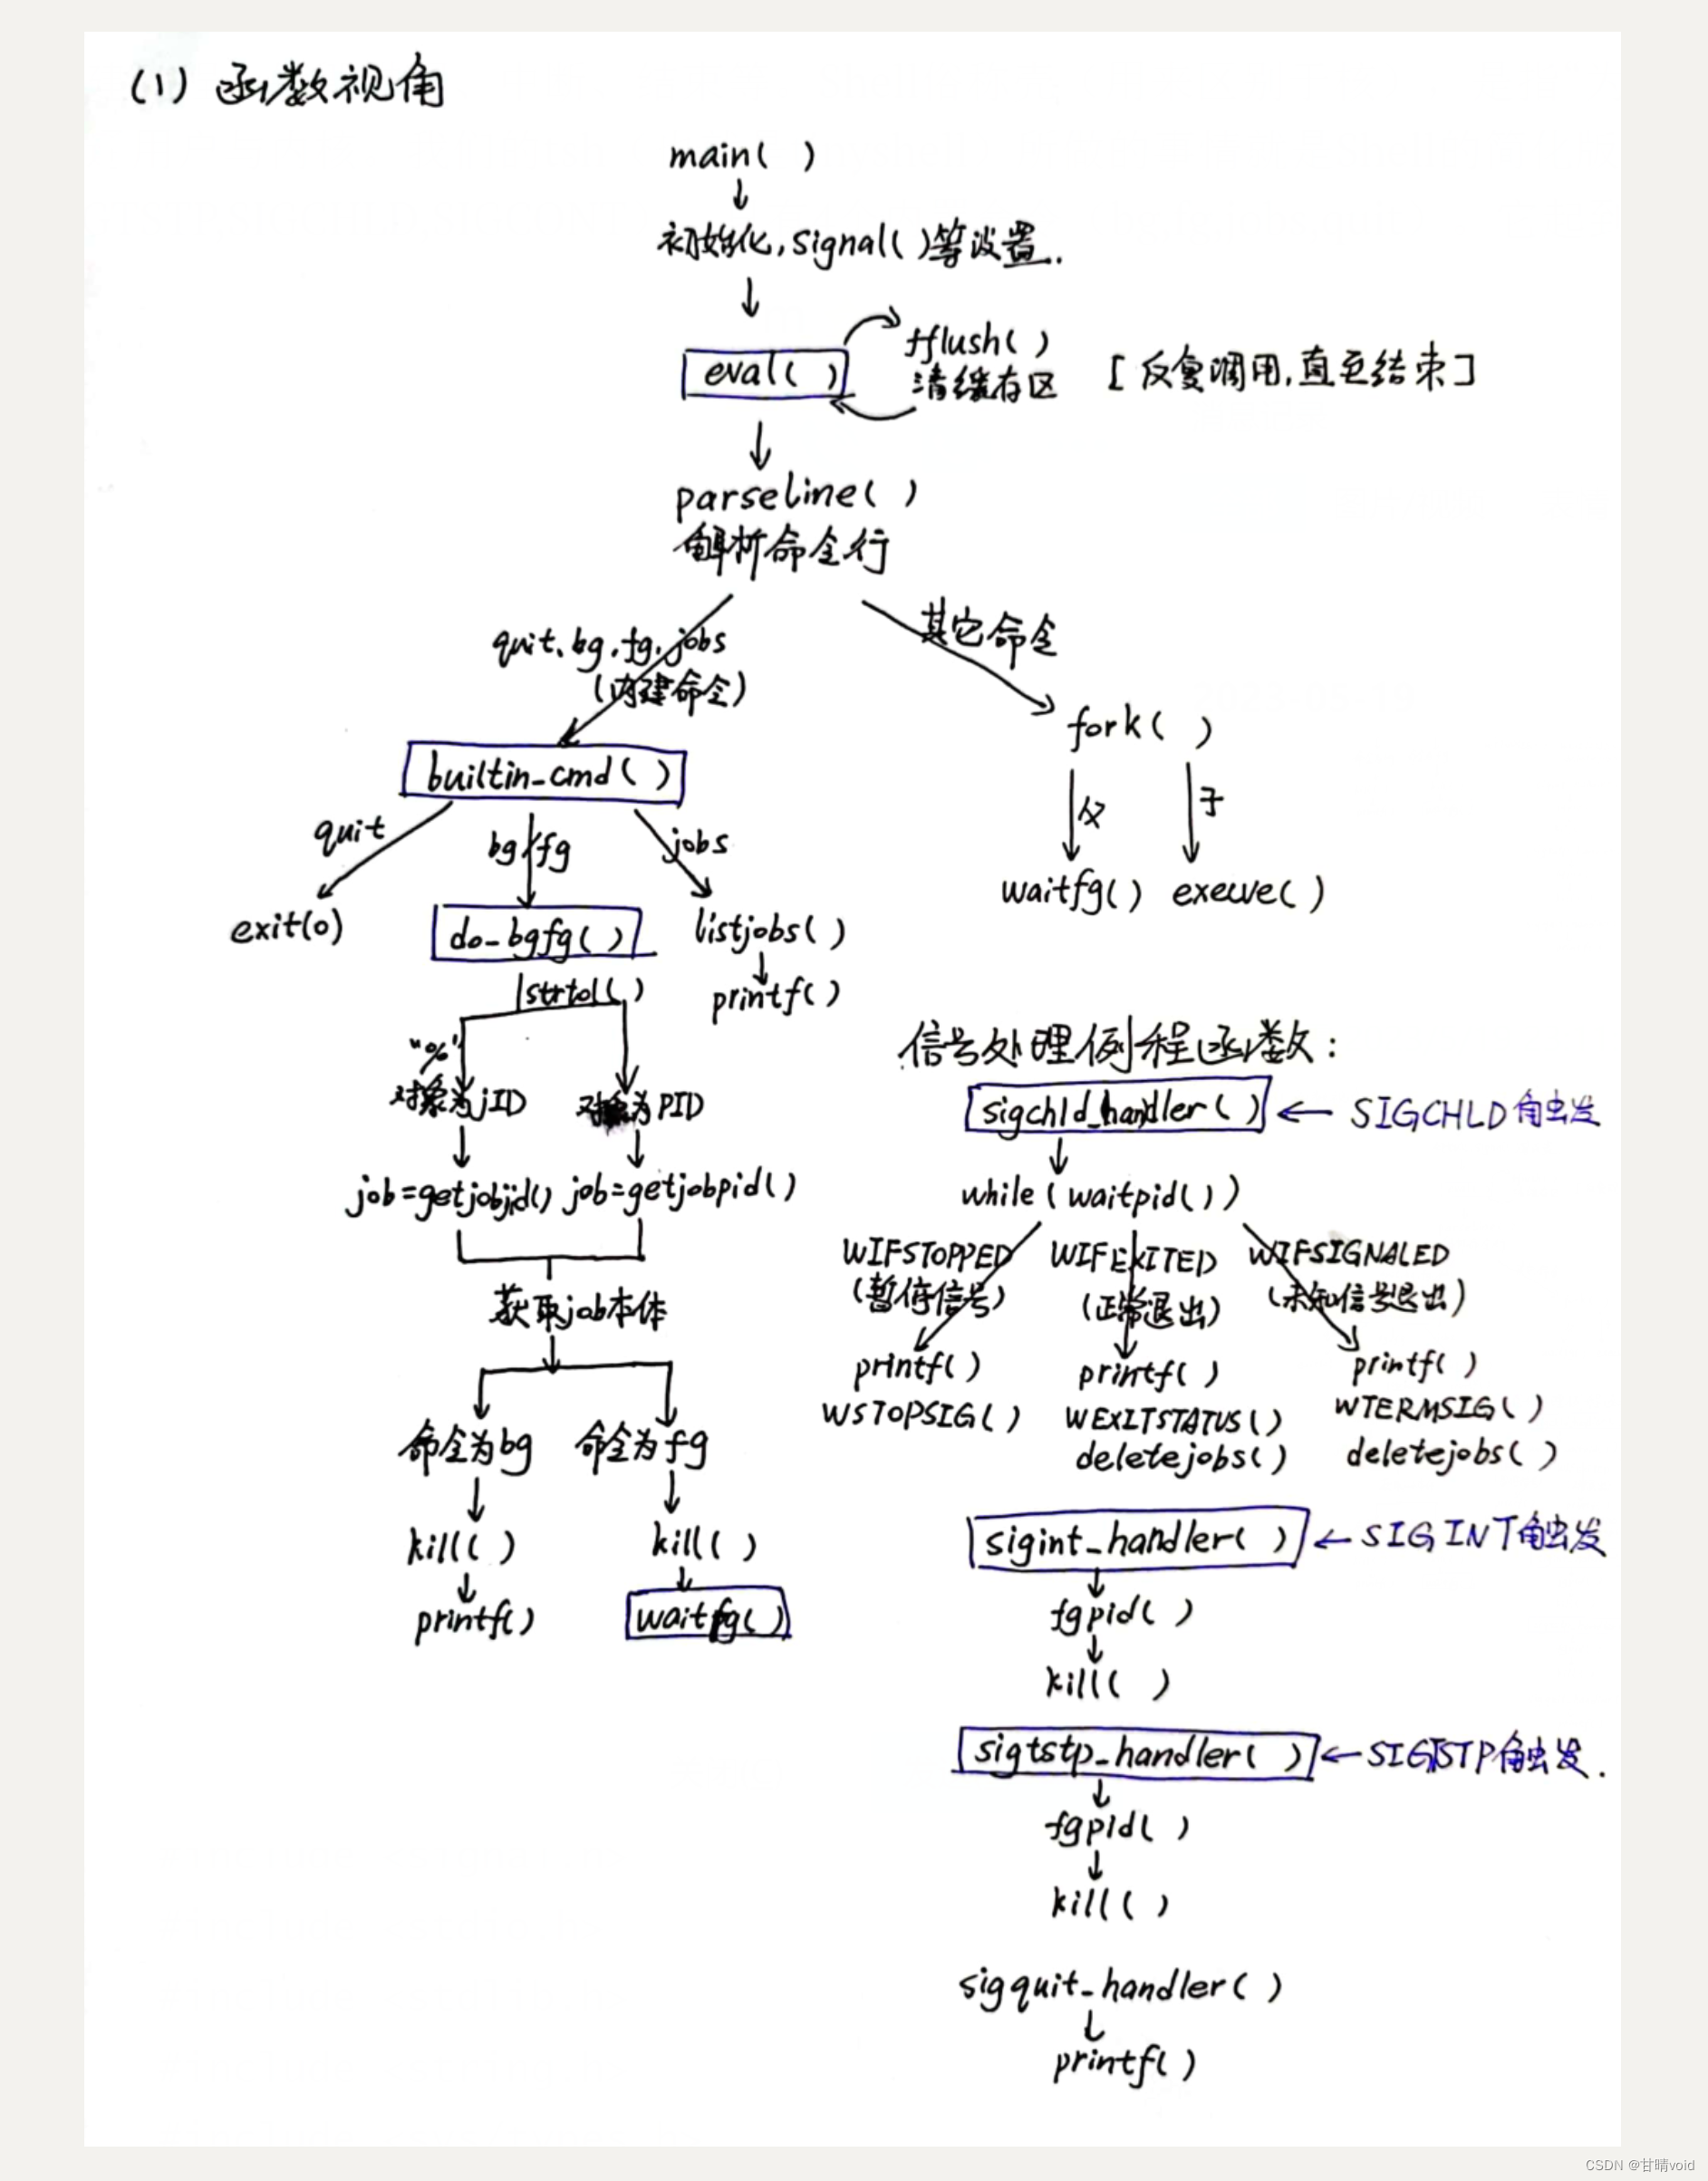 (1) 函数视角
main( )
初始化,signal( )等设置.
eval( )
fflush( )
清缓存区
[反复调用,直至结束]
parseline( )
解析命令行
quit、bg、fg、jobs
(内建命令)
其它命令
builtin_cmd( )
fork( )
quit
bg/fg
jobs
父
子
waitfg( )
execve( )
exit(0)
do_bgfg( )
listjobs( )
strtol( )
printf( )
"%"
对象为jID
对象为PID
job=getjobjid()
job=getjobpid()
获取job本体
命令为bg
命令为fg
kill( )
kill( )
printf()
waitfg( )
信号处理例程函数:
sigchld_handler( )
← SIGCHLD触发
while(waitpid())
WIFSTOPPED
(暂停信号)
WIFEXITED
(正常退出)
WIFSIGNALED
(未知信号退出)
printf( )
WSTOPSIG( )
printf( )
WEXITSTATUS( )
deletejobs( )
printf( )
WTERMSIG( )
deletejobs( )
sigint_handler( )
← SIGINT触发
fgpid( )
kill( )
sigtstp_handler( )
← SIGTSTP触发.
fgpid( )
kill( )
sigquit_handler( )
printf( )
CSDN @甘晴void